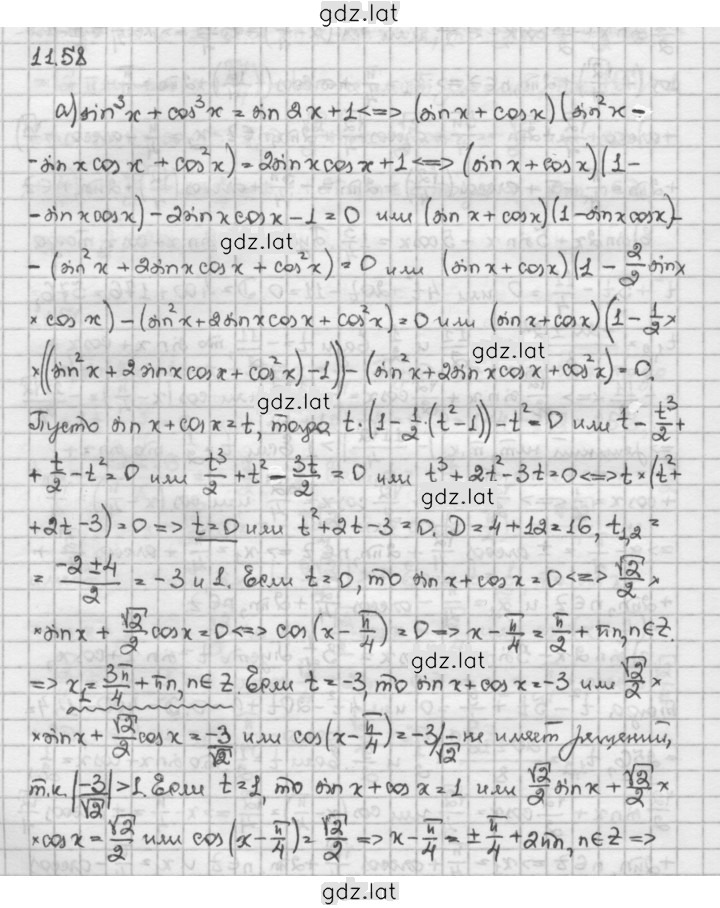 gdz.lat
11.58
а) sin³x + cos³x = sin 2x + 1 <=> (sin x + cos x)(sin²x -
- sin x cos x + cos²x) = 2 sin x cos x + 1 <=> (sin x + cos x)(1 -
- sin x cos x) - 2 sin x cos x - 1 = 0 или (sin x + cos x)(1 - sin x cos x) -
gdz.lat
- (sin²x + 2 sin x cos x + cos²x) = 0 или (sin x + cos x)(1 - 2/2 sin x ×
× cos x) - (sin²x + 2 sin x cos x + cos²x) = 0 или (sin x + cos x)(1 - 1/2 ×
gdz.lat
× ((sin²x + 2 sin x cos x + cos²x) - 1)) - (sin²x + 2 sin x cos x + cos²x) = 0.
gdz.lat
Пусть sin x + cos x = t, тогда t · (1 - 1/2 · (t² - 1)) - t² = 0 или t - t³/2 +
+ t/2 - t² = 0 или t³/2 + t² - 3t/2 = 0 или t³ + 2t² - 3t = 0 <=> t × (t² +
gdz.lat
+ 2t - 3) = 0 => t = 0 или t² + 2t - 3 = 0. D = 4 + 12 = 16, t₁,₂ =
= (-2 ± 4)/2 = -3 и 1. Если t = 0, то sin x + cos x = 0 <=> √2/2 ×
× sin x + √2/2 cos x = 0 <=> cos(x - π/4) = 0 => x - π/4 = π/2 + πn, n ∈ Z.
gdz.lat
=> x₁ = 3π/4 + πn, n ∈ Z. Если t = -3, то sin x + cos x = -3 или √2/2 ×
× sin x + √2/2 cos x = -3/√2 или cos(x - π/4) = -3/√2 - не имеет решений,
т.к. |-3/√2| > 1. Если t = 1, то sin x + cos x = 1 или √2/2 sin x + √2/2 ×
× cos x = √2/2 или cos(x - π/4) = √2/2 => x - π/4 = ± π/4 + 2πn, n ∈ Z =>
gdz.lat